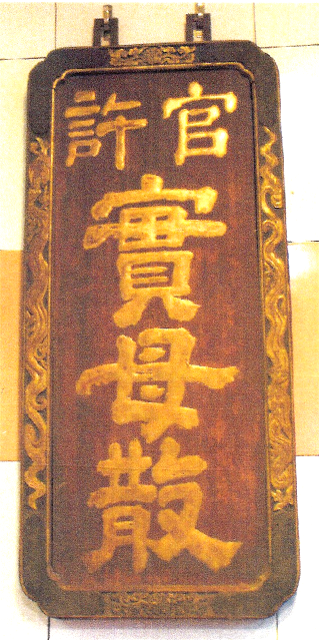 官許
實母散